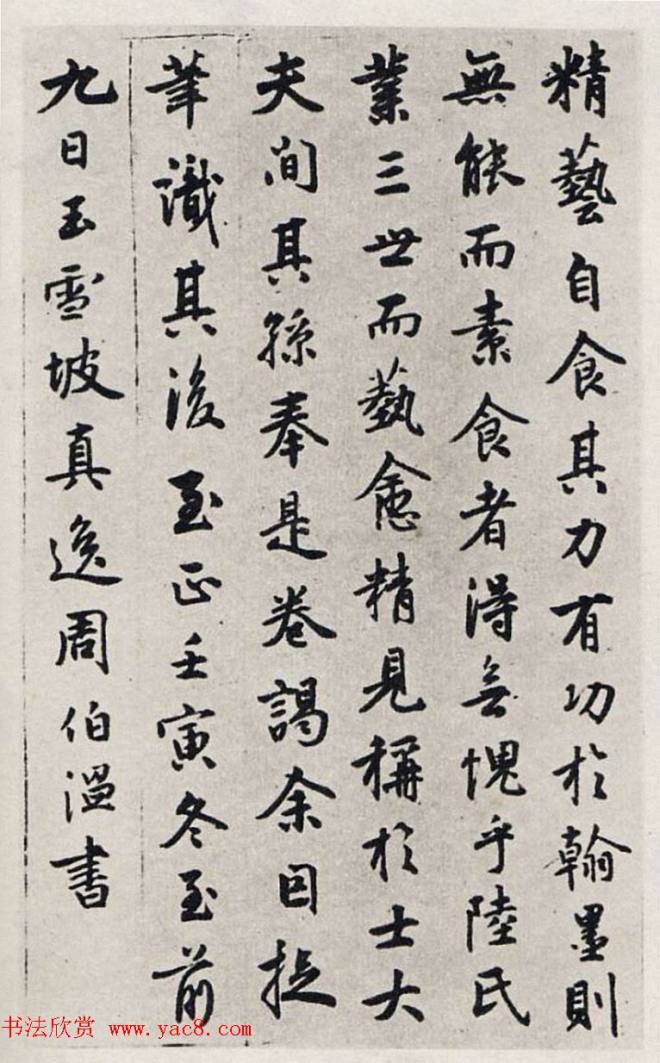 精藝自食其力有功於翰墨則
無能而素食者得無愧乎陸氏
業三世而藝愈精見稱於士大
夫間其孫奉是卷謁余因提
筆識其後至正壬寅冬至前
九日玉雪坡真逸周伯温書
书法欣赏 www.yac8.com